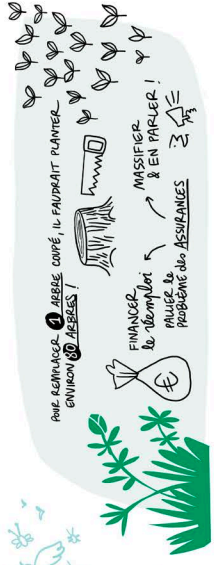 POUR REMPLACER 1 ARBRE COUPÉ, IL FAUDRAIT PLANTER
ENVIRON 80 ARBRES !
FINANCER
le réemploi
PALLIER le
PROBLÈME des ASSURANCES
MASSIFIER
& EN PARLER !
€